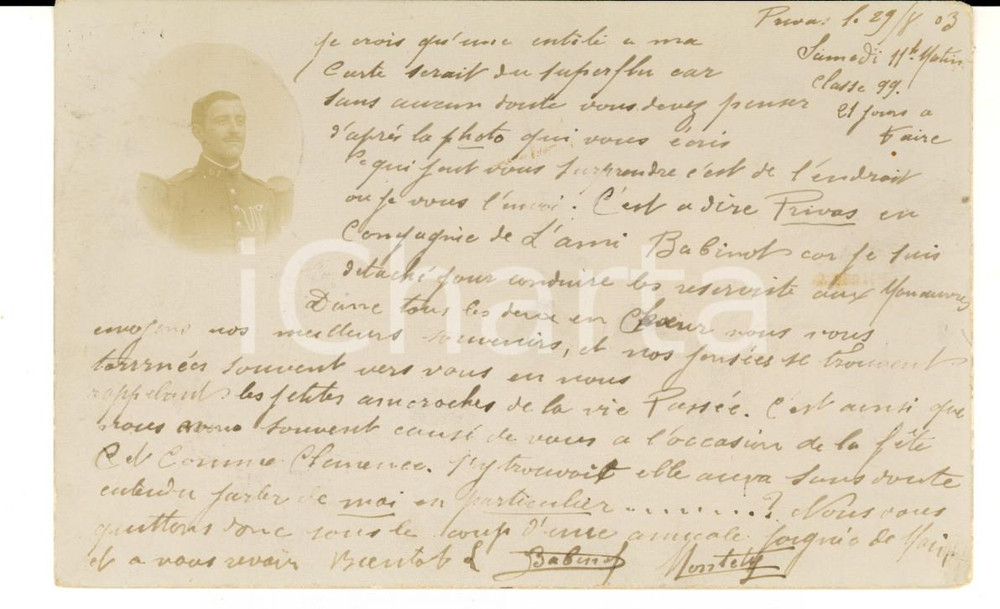 Privas le 29/8 03
Samedi 11h Matin
Classe 99.
21 jours a
Faire
Je crois qu'une entité a ma
Carte serait du superflu car
sans aucun doute vous devez penser
d'après la photo qui vous écris
Ce qui faut vous surprendre c'est de l'endroit
ou je vous l'envoi. C'est a dire Privas en
Compagnie de L'ami Babinot car je suis
détaché pour conduire les reserviste aux Manœuvres
Donc tous les deux en Chœur nous vous
envoyons nos meilleurs souvenirs, et nos pensées se trouvent
tournées souvent vers vous en nous
rappelant les petites anicroches de la vie Passée. C'est ainsi que
nous avons souvent causé de vous a l'occasion de la fête
Et Comme Clemence s'y trouvait elle aura sans doute
entendu parler de moi en particulier ..........? Nous vous
quittons donc sous le coup d'une amicale poignée de Main
et a vous revoir Bientot
Babinot
iCharta